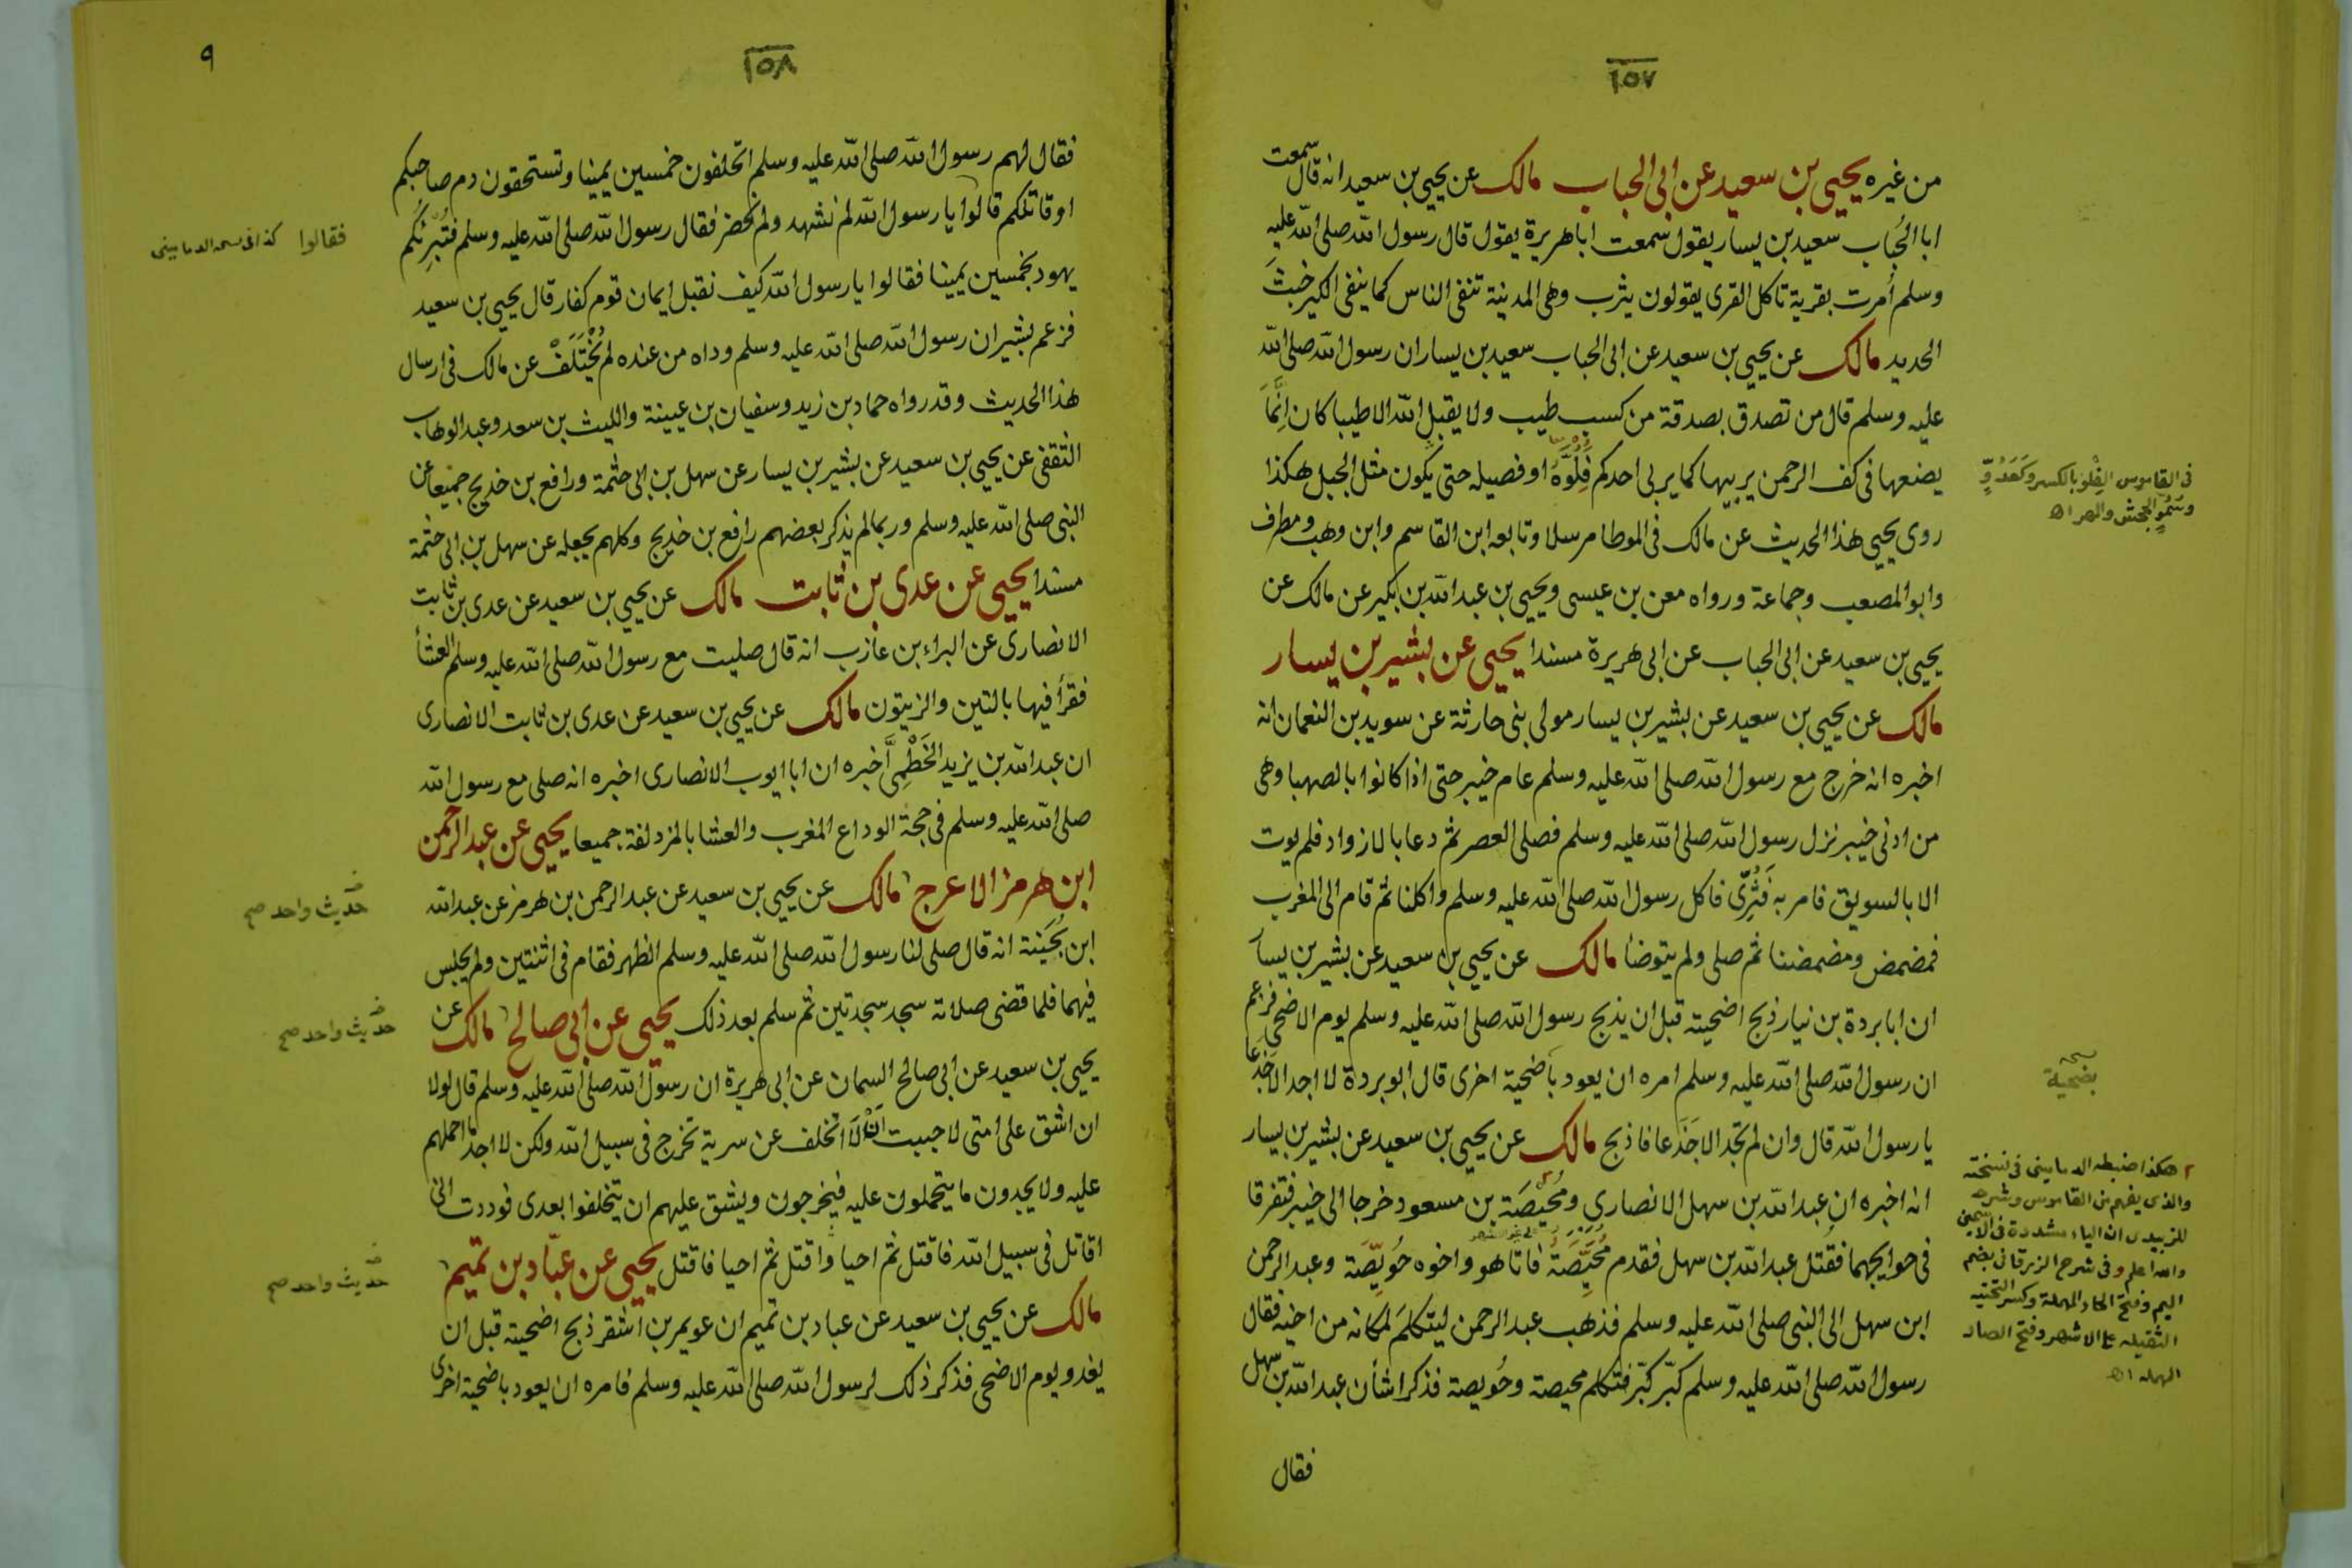 ١٥٧
من غيره يحيى بن سعيد عن ابى الحباب مالك عن يحيى بن سعيد انه قال سمعت
ابا الحُباب سعيد بن يسار يقول سمعت ابا هريرة يقول قال رسول الله صلى الله عليه
وسلم أُمرت بقرية تاكل القرى يقولون يثرب وهى المدينة تنفى الناس كما ينفى الكير خبثَ
الحديد مالك عن يحيى بن سعيد عن ابى الحباب سعيد بن يسار ان رسول الله صلى الله
عليه وسلم قال من تصدق بصدقة من كسب طيب ولا يقبل الله الا طيبا كان اِنَّمَا
يضعها فى كف الرحمن يربيها كما يربى احدكم فِلُوَّهُ او فصيله حتى يكون مثل الجبل هكذا
روى يحيى هذا الحديث عن مالك فى الموطا مرسلا وتابعه ابن القاسم وابن وهب ومطرف
وابو المصعب وجماعة ورواه معن بن عيسى ويحيى بن عبد الله بن بكير عن مالك عن
يحيى بن سعيد عن ابى الحباب عن ابى هريرة مسندا يحيى عن بشير بن يسار
مالك عن يحيى بن سعيد عن بشير بن يسار مولى بنى حارثة عن سويد بن النعمان انه
اخبره انه خرج مع رسول الله صلى الله عليه وسلم عام خيبر حتى اذا كانوا بالصهبا وهى
من ادنى خيبر نزل رسول الله صلى الله عليه وسلم فصلى العصر ثم دعا بالازواد فلم يوت
الا بالسويق فامر به فَثُرِّى فاكل رسول الله صلى الله عليه وسلم واكلنا ثم قام الى المغرب
فمضمض ومضمضنا ثم صلى ولم يتوضأ مالك عن يحيى بن سعيد عن بشير بن يسار
ان ابا بردة بن نيار ذبح اضحيته قبل ان يذبح رسول الله صلى الله عليه وسلم يوم الاضحى فزعم
ان رسول الله صلى الله عليه وسلم امره ان يعود باضحية اخرى قال ابو بردة لا اجد الا جَذَعا
يا رسول الله قال وان لم تجد الا جَذَعا فاذبح مالك عن يحيى بن سعيد عن بشير بن يسار
انه اخبره ان عبد الله بن سهل الانصارى ومُحيّصَة بن مسعود خرجا الى خيبر فتفرقا
فى حوايجهما فقُتل عبد الله بن سهل فقدم مُحَيِّصَةُ فاتا هو واخوه حُوَيِّصَة وعبد الرحمن
ابن سهل الى النبى صلى الله عليه وسلم فذهب عبد الرحمن ليتكلمَ لمكانه من اخيه فقال
رسول الله صلى الله عليه وسلم كبّر كبّر فتكلم محيصة وحُويصة فذكرا شأن عبد الله بن سهل
فقال
فى القاموس الفِلْو بالكسر وكَعَدُوٍّ
وسُمُوٍّ الجحش والمهر اه
بضحية
هكذا ضبطه الدمامينى فى نسخته
والذى يفهم من القاموس وشرحه
للزبيدى ان الياء مشددة فى الاسمين
والله اعلم وفى شرح الزرقانى بضم
الميم وفتح الحاء المهملة وكسر التحتية
الثقيلة على الاشهر وفتح الصاد
المهملة اه
١٥٨
٩
فقال لهم رسول الله صلى الله عليه وسلم اتحلفون خمسين يمينا وتستحقون دم صاحبكم
او قاتلكم قالوا يا رسول الله لم نشهد ولم نحضر فقال رسول الله صلى الله عليه وسلم فتُبْرِئُكُم
يهود بخمسين يمينا فقالوا يا رسول الله كيف نقبل ايمان قوم كفار قال يحيى بن سعيد
فزعم بشير ان رسول الله صلى الله عليه وسلم وداه من عنده لم يُخْتَلَفْ عن مالك فى ارسال
هذا الحديث وقد رواه حماد بن زيد وسفيان بن عيينة والليث بن سعد وعبد الوهاب
الثقفى عن يحيى بن سعيد عن بشير بن يسار عن سهل بن ابى حثمة ورافع بن خديج جميعا عن
النبى صلى الله عليه وسلم وربما لم يذكر بعضهم رافع بن خديج وكلهم يجعله عن سهل بن ابى حثمة
مسندا يحيى عن عدى بن ثابت مالك عن يحيى بن سعيد عن عدى بن ثابت
الانصارى عن البراء بن عازب انه قال صليت مع رسول الله صلى الله عليه وسلم العشأ
فقرأ فيها بالتين والزيتون مالك عن يحيى بن سعيد عن عدى بن ثابت الانصارى
ان عبد الله بن يزيد الخَطْمِىَّ اخبره ان ابا ايوب الانصارى اخبره انه صلى مع رسول الله
صلى الله عليه وسلم فى حجة الوداع المغرب والعشا بالمزدلفة جميعا يحيى عن عبد الرحمن
ابن هرمز الاعرج مالك عن يحيى بن سعيد عن عبد الرحمن بن هرمز عن عبد الله
ابن بُحَينة انه قال صلى لنا رسول الله صلى الله عليه وسلم الظهر فقام فى اثنتين ولم يجلس
فيهما فلما قضى صلاته سجد سجدتين ثم سلم بعد ذلك يحيى عن ابى صالح مالك عن
يحيى بن سعيد عن ابى صالح السمان عن ابى هريرة ان رسول الله صلى الله عليه وسلم قال لولا
ان اشق على امتى لاحببت اَنْ لَا اتخلف عن سرية تخرج فى سبيل الله ولكن لا اجد ما احملهم
عليه ولا يجدون ما يتحملون عليه فيخرجون ويشق عليهم ان يتخلفوا بعدى فوددت انى
اقاتل فى سبيل الله فاقتل ثم احيا واقتل ثم احيا فاقتل يحيى عن عبّاد بن تميم
مالك عن يحيى بن سعيد عن عباد بن تميم ان عويمر بن اشقر ذبح اضحيته قبل ان
يغدو يوم الاضحى فذكر ذلك لرسول الله صلى الله عليه وسلم فامره ان يعود باضحية اخرى
فقالوا كذا فى نسخة الدمامينى
حديث واحد صح
حديث واحد صح
حديث واحد صح